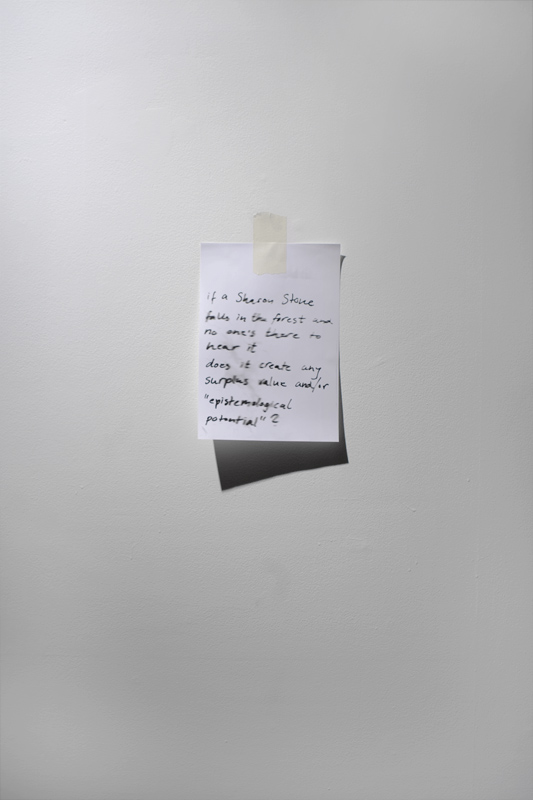 if a Sharon Stone
falls in the forest and
no one's there to
hear it
does it create any
surplus value and/or
"epistemological
potential"?